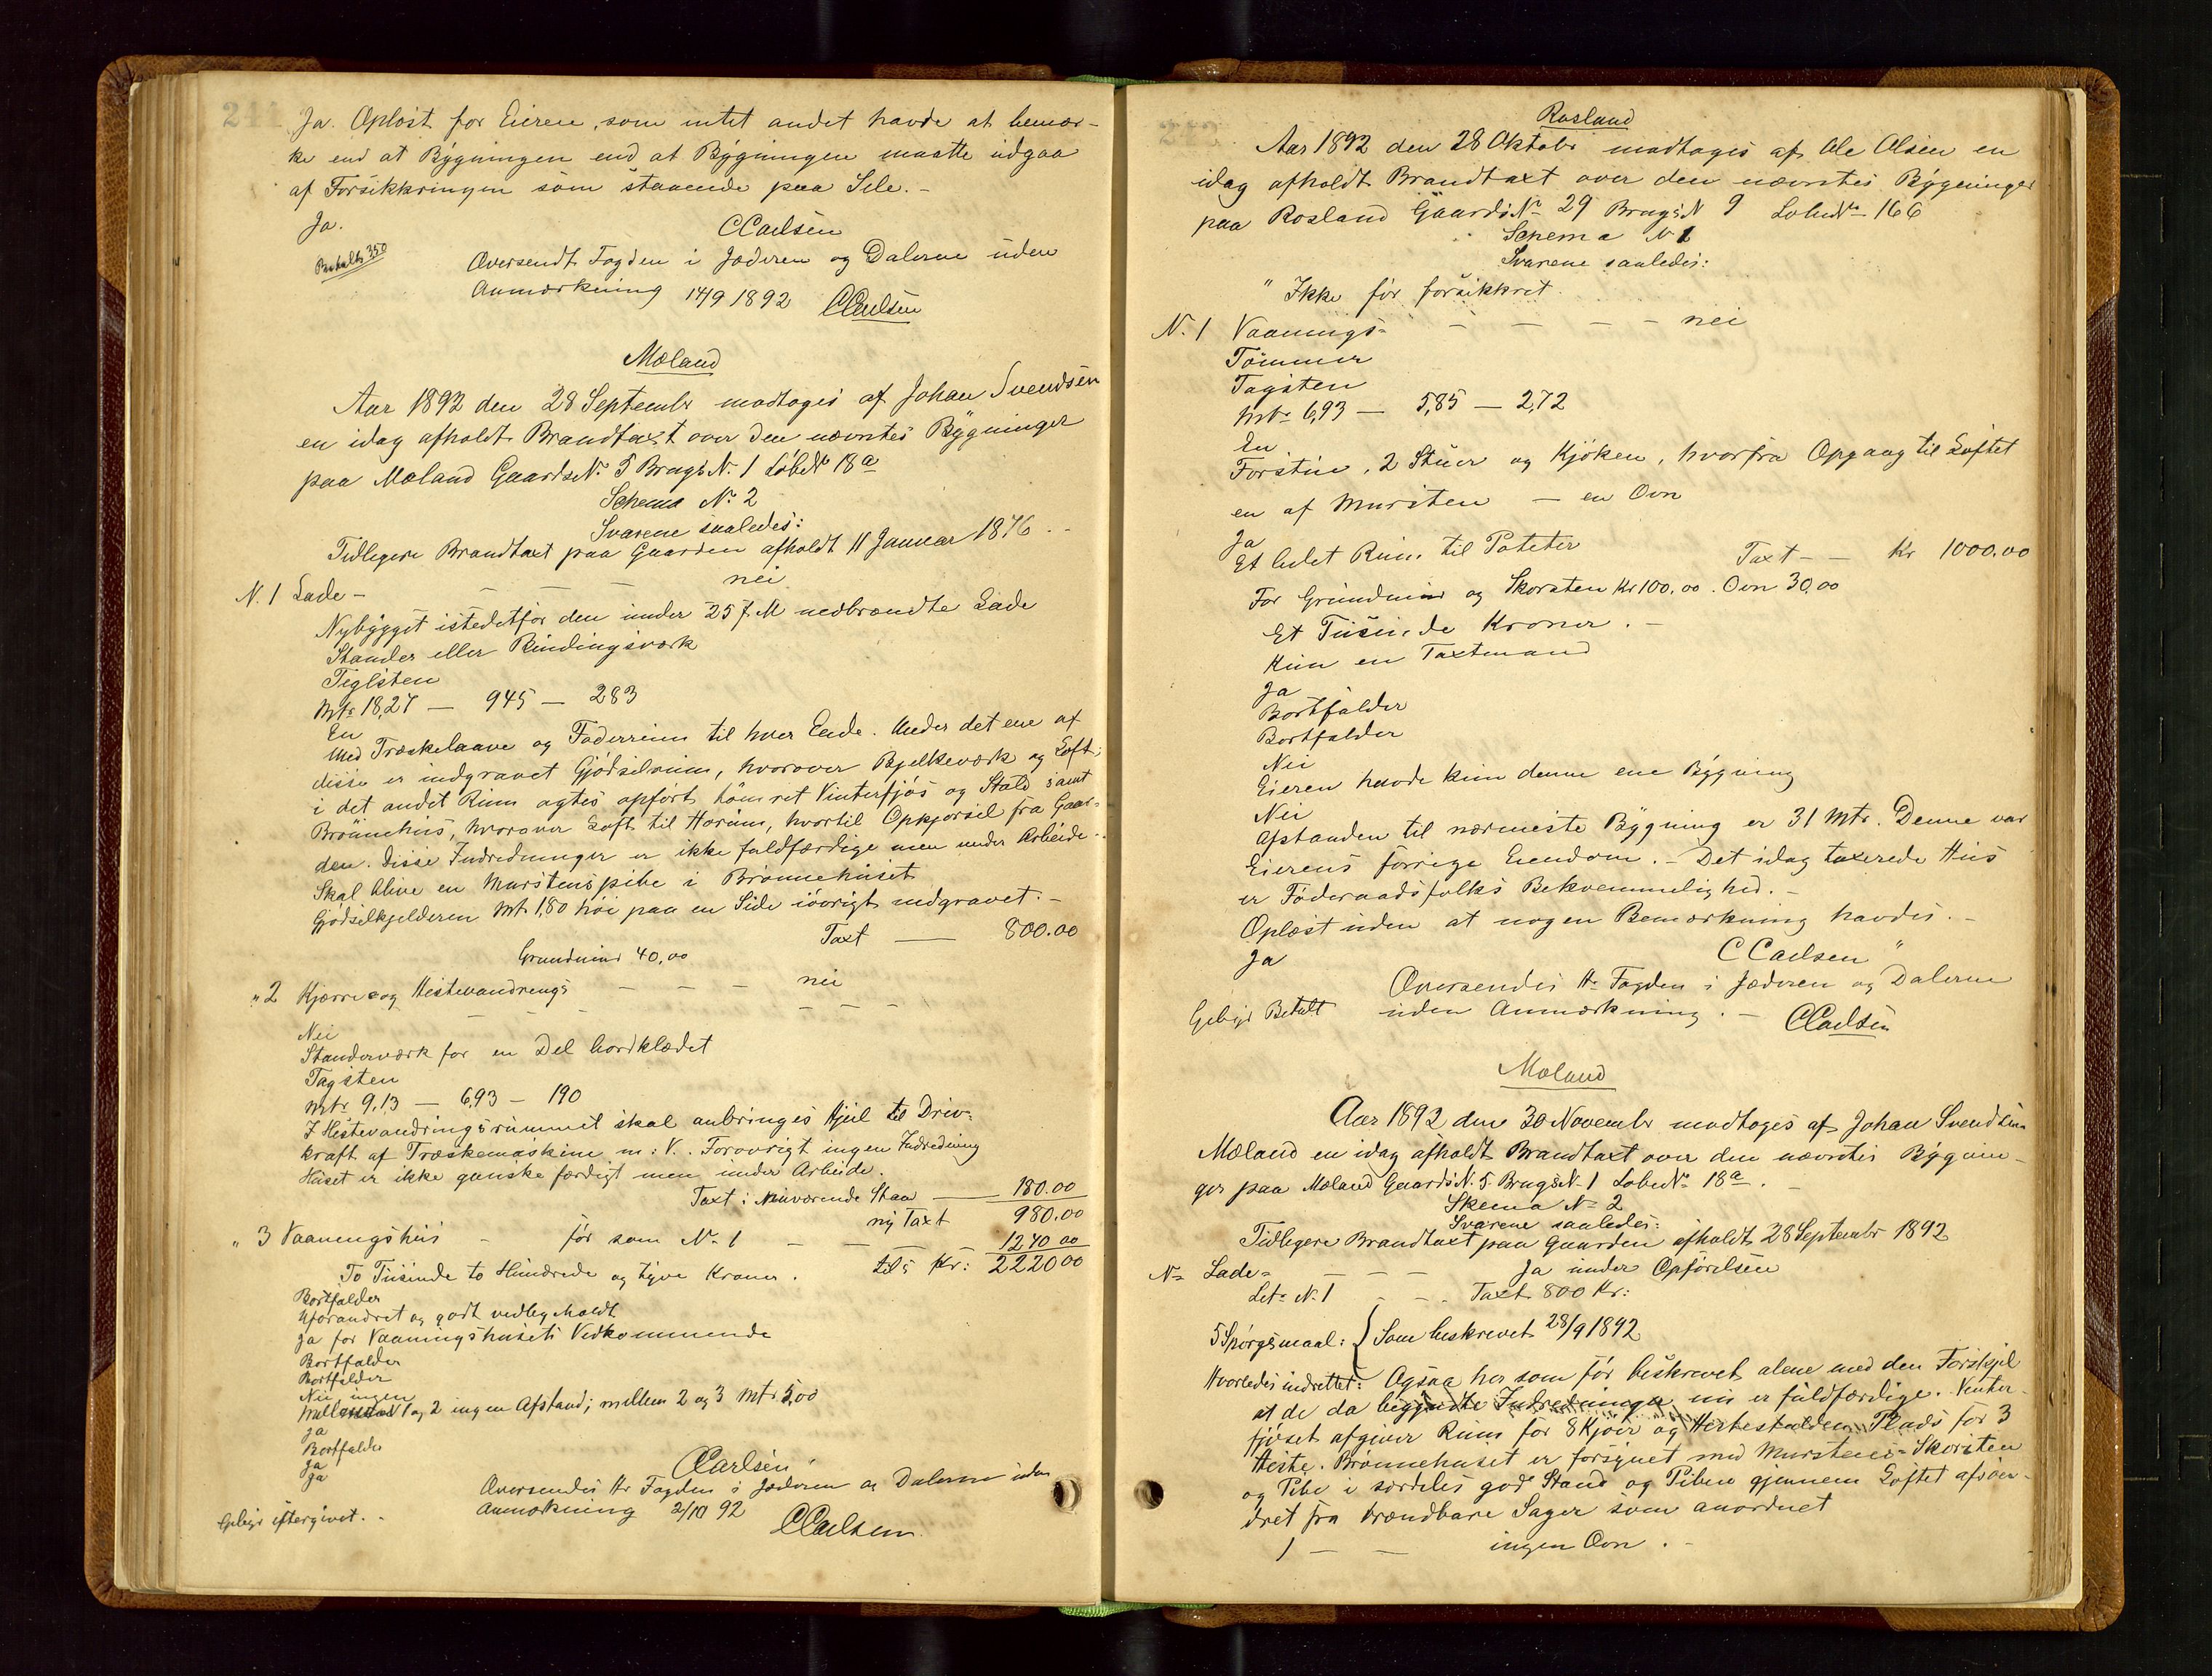 Ja. Oplöst for Eieren, som intet andet havde at bemær-
ke end at Bygningen end at Bygningen maatte udgaa
af Forsikkringen som staaende paa Sele. -
Ja.
CCarlsen
Betalt 350
Oversendt Fogden i Jæderen og Dalerne uden
Anmærkning 14/9 1892 CCarlsen
Mæland
Aar 1892 den 28 September modtoges af Johan Svendsen
en idag afholdt Brandtaxt over den nævntes Bygninger
paa Mæland Gaards No 5 Brugs No 1 Löbe No 18a
Schema No 2
Svarene saaledes:
Tidligere Brandtaxt paa Gaarden afholdt 11 Januar 1876
N. 1 Lade - - - - nei
Nybygget istedetfor den under 25 f. M nedbrændte Lade
Stander eller Bindingsværk
Teglsten
Mtr 18,27 - 945 - 283
En
Med Træskelaave og Foderrum til hver Ende. Under det ene af
disse er indgravet Gjödselrum, hvorover Bjelkeværk og Loft;
i det andet Rum agtes opfört tömret Vinterfjös og Stald samt
Brönnehus, hvorover Loft til Hörum, hvortil Opkjörsel fra Gaar-
den. Disse Indredninger er ikke fuldfærdige men under Arbeide -
Skal blive en Murstenspibe i Brönnehuset
Gjödselkjelderen Mt. 1,80 höi paa en Side iövrigt nedgravet. -
Taxt - 800.00
Grundmur 40,00
" 2 Kjærre og Hestevandrings - - - nei
Nei
Standerværk for en Del bordklædet
Tagsten
Mtr 9,13 - 6,93 - 190
I Hestevandringsrummet skal anbringes Hjul til Driv-
kraft af Træskemaskine m: V. Forövrigt ingen Indredning
Huset er ikke ganske færdigt men under Arbeide.
Taxt i nuværende Stan - 180.00
ny Taxt 980.00
" 3 Vaaningshus - för som No 1 - - 1240 00
To Tusinde to Hundrede og tyve Kroner. tils Kr: 2220 00
Bortfalder
Uforandret og godt vedligeholdt
Ja for Vaaningshusets Vedkommende
Bortfalder
Bortfalder
Nei ingen
Mellem 1 og 2 ingen Afstand; mellem 2 og 3 Mtr 5,00
Ja
Bortfalder
Ja
Ja
CCarlsen
Oversendes Hr Fogden i Jæderen og Dalerne uden
Anmærkning 2/10 92 CCarlsen
Gebyr eftergivet. -
Rosland
Aar 1892 den 28 Oktobr modtoges af Ole Olsen en
idag afholdt Brandtaxt over den nævntes Bygninger
paa Rosland Gaards No 29 Brugs N 9 Lobe No 166
Schema N 1
Svarene saaledes:
" Ikke för forsikkret.
N. 1 Vaanings- - - - - nei
Tömmer
Tagsten
Mtr 6,93 - 5,85 - 2,72
En
Forstue, 2 Stuer og Kjöken, hvorfra Opgang til Loftet
en af Mursten - en Ovn
Ja
Et lidet Rum til Poteter Taxt - - Kr 1000.00
For Grundmur og Skorsten Kr 100,00. Ovn 30,00
Et Tusinde Kroner. -
Kun en Taxtmand
Ja
Bortfalder
Bortfalder
Nei
Eieren havde kun denne ene Bygning
Nei
Afstanden til nærmeste Bygning er 31 Mtr. Denne var
Eierens forrige Eiendom. - Det idag taxerede Hus
er Föderaadsfolks Bekvemmelighed. -
Oplæst uden at nogen Bemærkning havdes. -
Ja
CCarlsen "
Oversendes Hr Fogden i Jæderen og Dalerne
Gebyr Betalt uden Anmærkning. - CCarlsen
Mæland
Aar 1892 den 30 Novembr modtoges af Johan Svendsen
Mæland en idag afholdt Brandtaxt over den nævntes Bygnin-
ger paa Mæland Gaards N. 5 Brugs N. 1 Lobe No 18a. -
Skema No 2
Svarene saaledes:
Tidligere Brandtaxt paa Gaarden afholdt 28 Septembr 1892
No Lade- - - - Ja under Opförelsen
Lit. N. 1 - - Taxt 800 Kr:
5 Spörgsmaal: { Som beskrevet 28/9 1892
Hvorledes indrettet: Ogsaa her som för beskrevet alene med den Forskjel
at de da begyndte Indredninger nu er fuldfærdige. Venter-
fjöset afgiver Rum for 8 Kjöer og Hestestalden Plads for 3
Heste. Brönnehuset er forsynet med Murstens-Skorsten
og Pibe i særdeles god Stand og Piben gjennem Loftet afsön-
dret fra brændbare Sager som anordnet
1 - - ingen Ovn. -